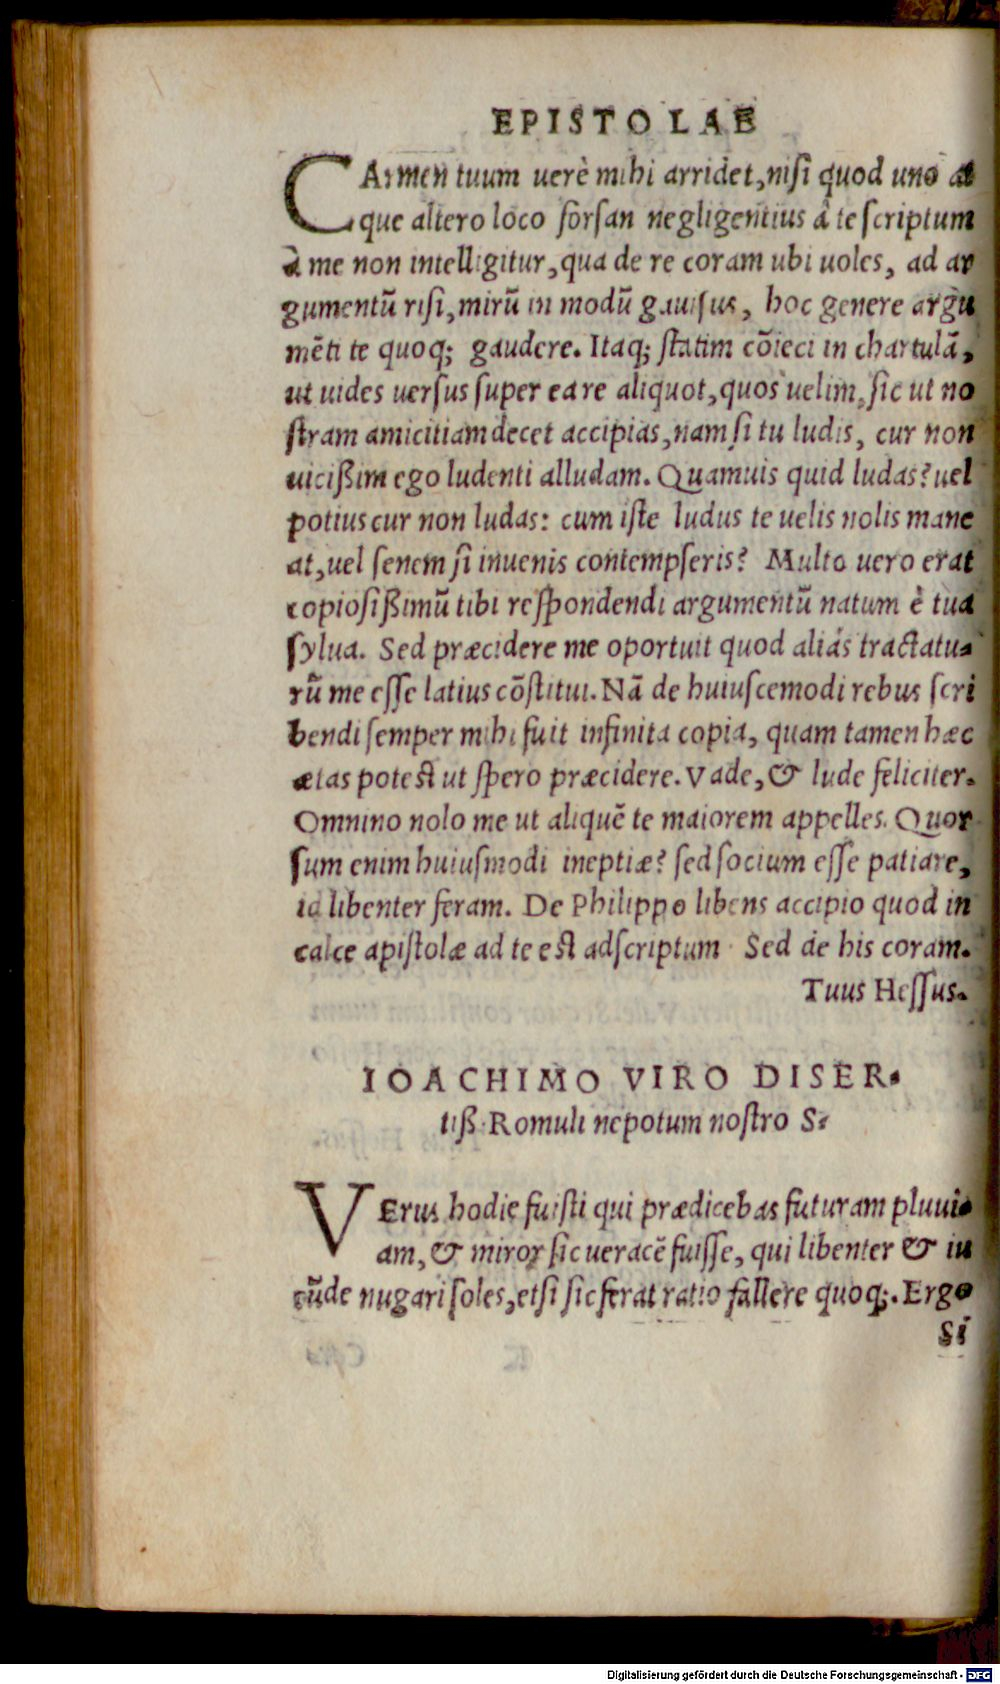 EPISTOLAE
CArmen tuum uerè mihi arridet, nisi quod uno at
que altero loco forsan negligentius â te scriptum
à me non intelligitur, qua de re coram ubi uoles, ad ar
gumentū risi, mirū in modū gauisus, hoc genere argu
mēti te quoq; gaudere. Itaq; statim cōieci in chartulā,
ut uides uersus super ea re aliquot, quos uelim, sic ut no
stram amicitiam decet accipias, nam si tu ludis, cur non
uicißim ego ludenti alludam. Quamuis quid ludas? uel
potius cur non ludas: cum iste ludus te uelis nolis mane
at, uel senem si inuenis contempseris? Multo uero erat
copiosißimū tibi respondendi argumentū natum è tua
sylua. Sed præcidere me oportuit quod aliás tractatu-
rū me esse latius cōstitui. Nā de huiuscemodi rebus scri
bendi semper mihi fuit infinita copia, quam tamen hæc
ætas potest ut spero præcidere. Vade, & lude feliciter.
Omnino nolo me ut aliquē te maiorem appelles. Quor
sum enim huiusmodi ineptiæ? sed socium esse patiare,
id libenter feram. De Philippo libens accipio quod in
calce apistolæ ad te est adscriptum. Sed de his coram.
Tuus Hessus.
IOACHIMO VIRO DISER-
tiß. Romuli nepotum nostro S.
VErus hodie fuisti qui prædicebas futuram pluui-
am, & miror sic ueracē fuisse, qui libenter & iu
cūde nugari soles, etsi sic ferat ratio fallere quoq;. Ergo
Si
Digitalisierung gefördert durch die Deutsche Forschungsgemeinschaft - DFG